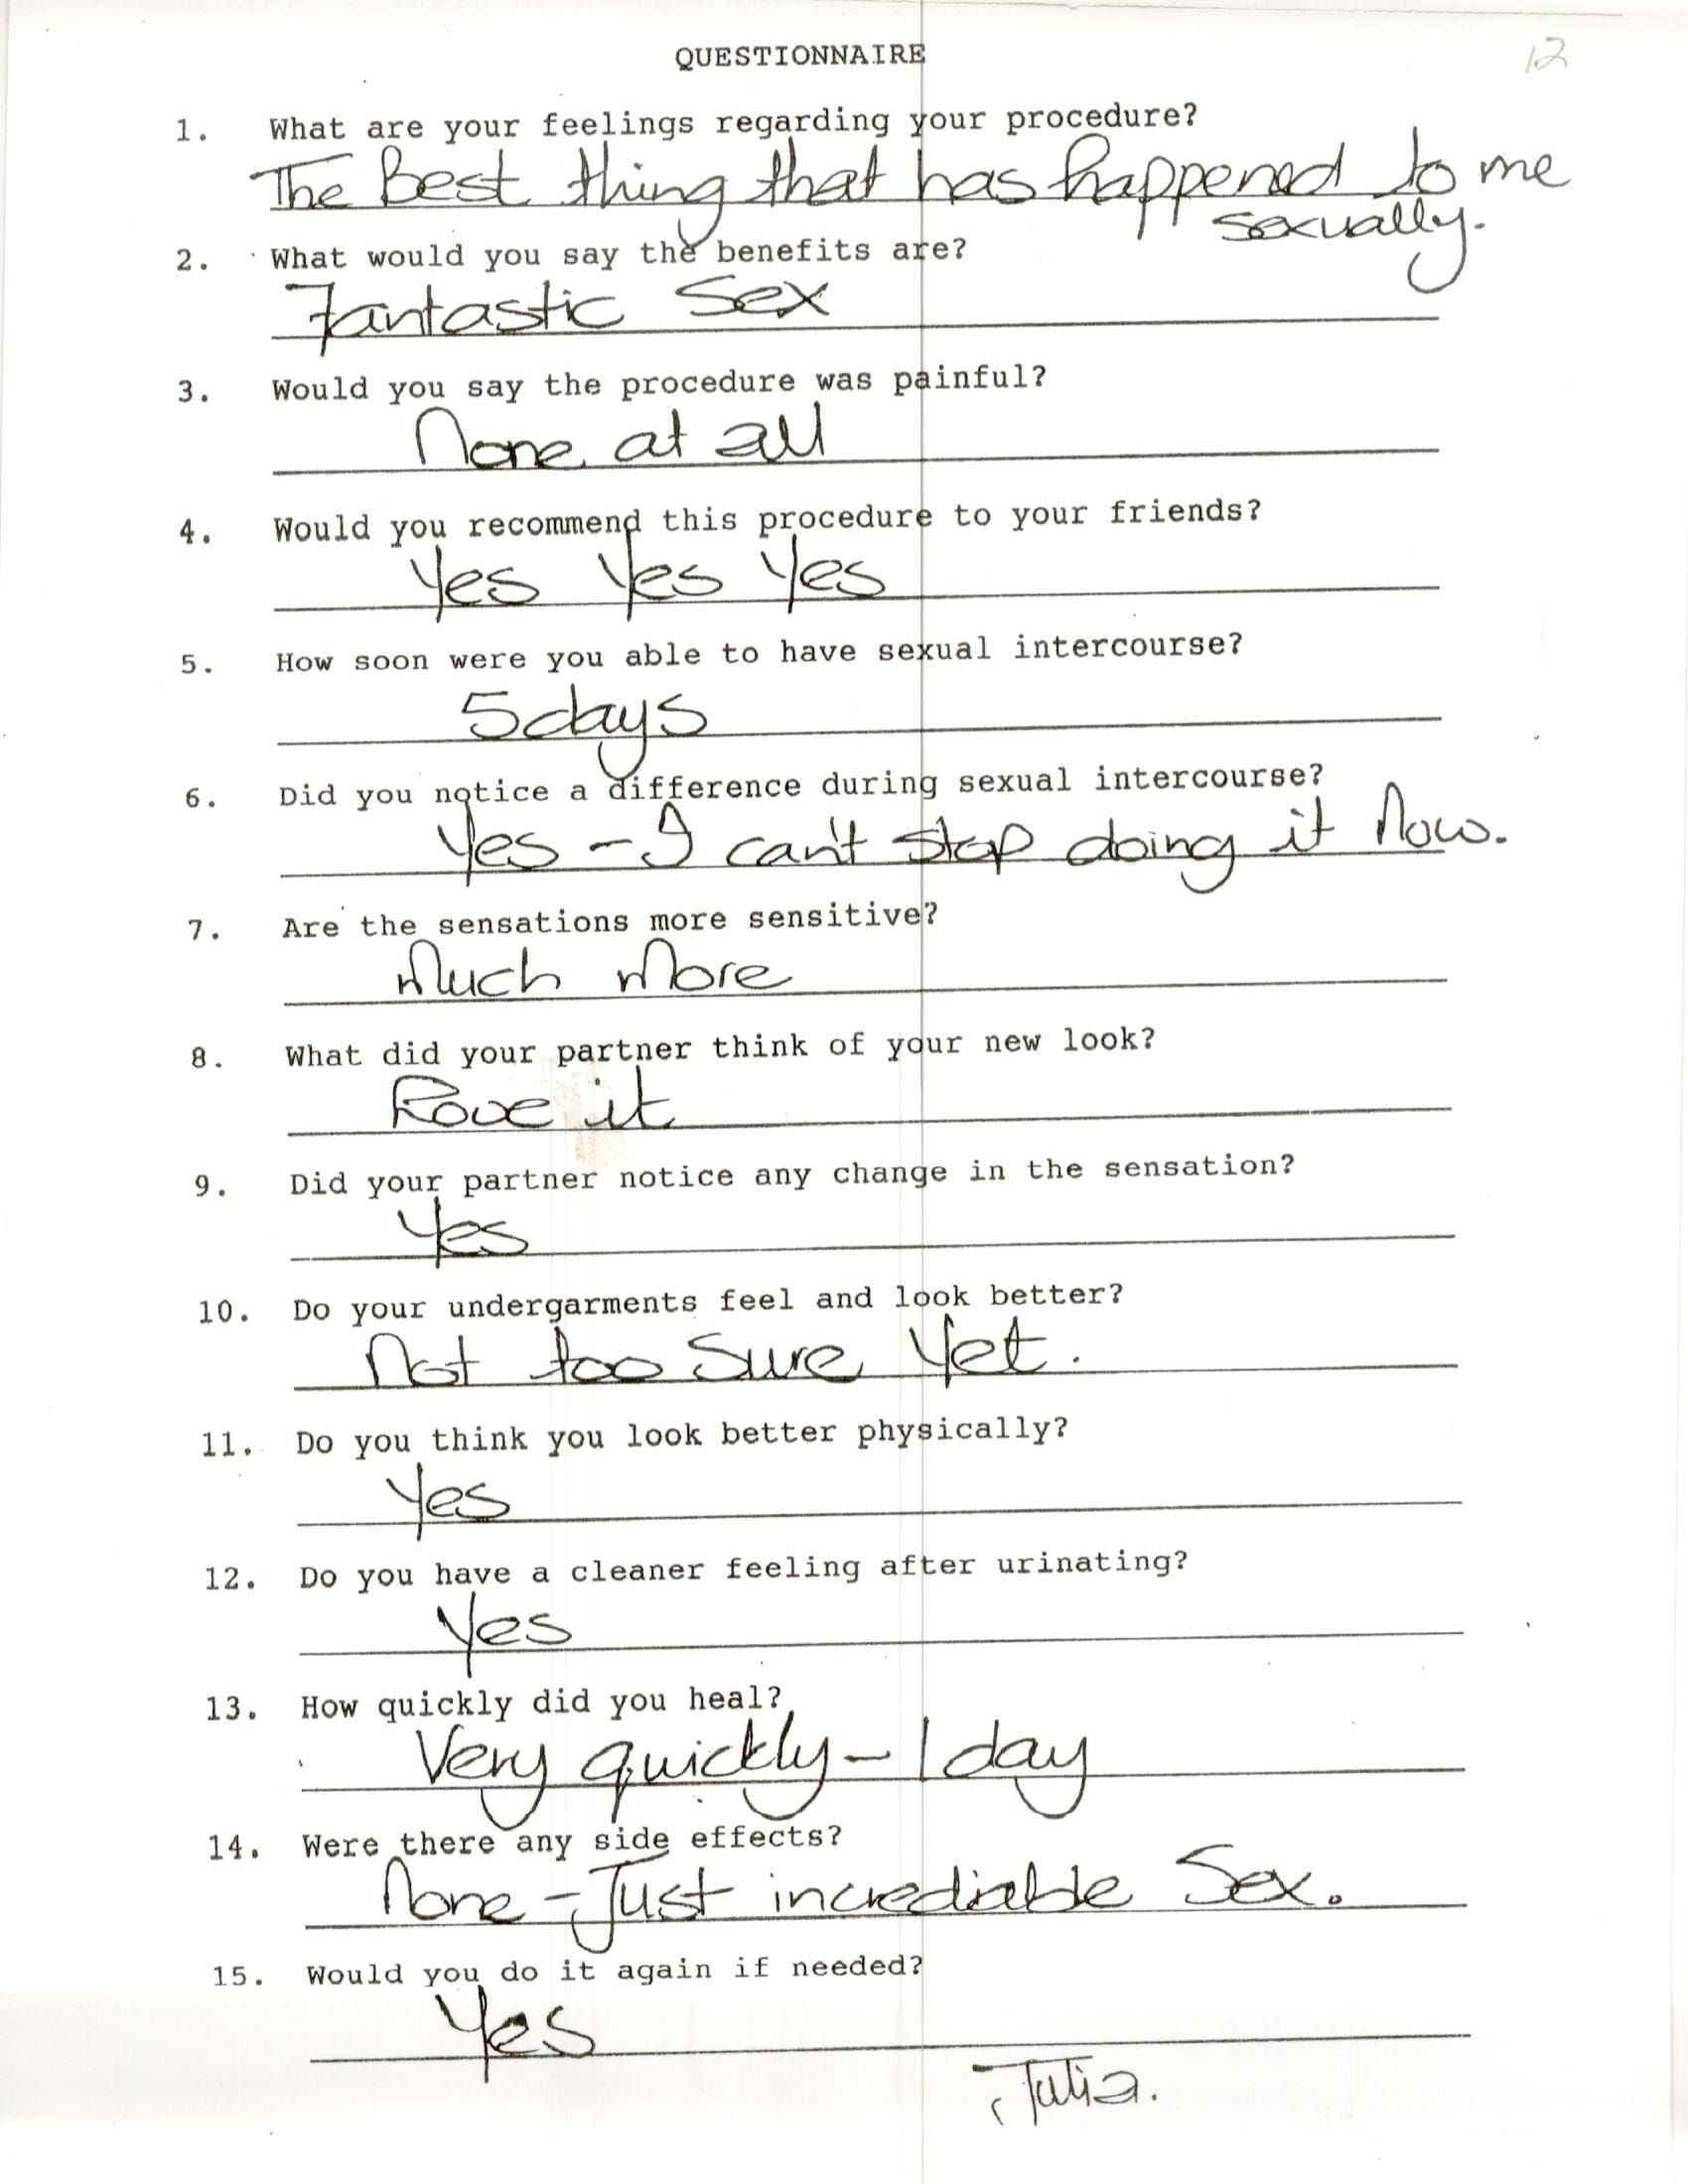 QUESTIONNAIRE
12
1. What are your feelings regarding your procedure?
The Best thing that has happened to me
sexually.
2. What would you say the benefits are?
Fantastic Sex
3. Would you say the procedure was painful?
None at all
4. Would you recommend this procedure to your friends?
Yes Yes Yes
5. How soon were you able to have sexual intercourse?
5 days
6. Did you notice a difference during sexual intercourse?
Yes - I can't stop doing it Now.
7. Are the sensations more sensitive?
Much More
8. What did your partner think of your new look?
Love it
9. Did your partner notice any change in the sensation?
Yes
10. Do your undergarments feel and look better?
Not too Sure Yet.
11. Do you think you look better physically?
Yes
12. Do you have a cleaner feeling after urinating?
Yes
13. How quickly did you heal?
Very quickly - 1 day
14. Were there any side effects?
None - Just incrediable Sex.
15. Would you do it again if needed?
Yes
Julia.